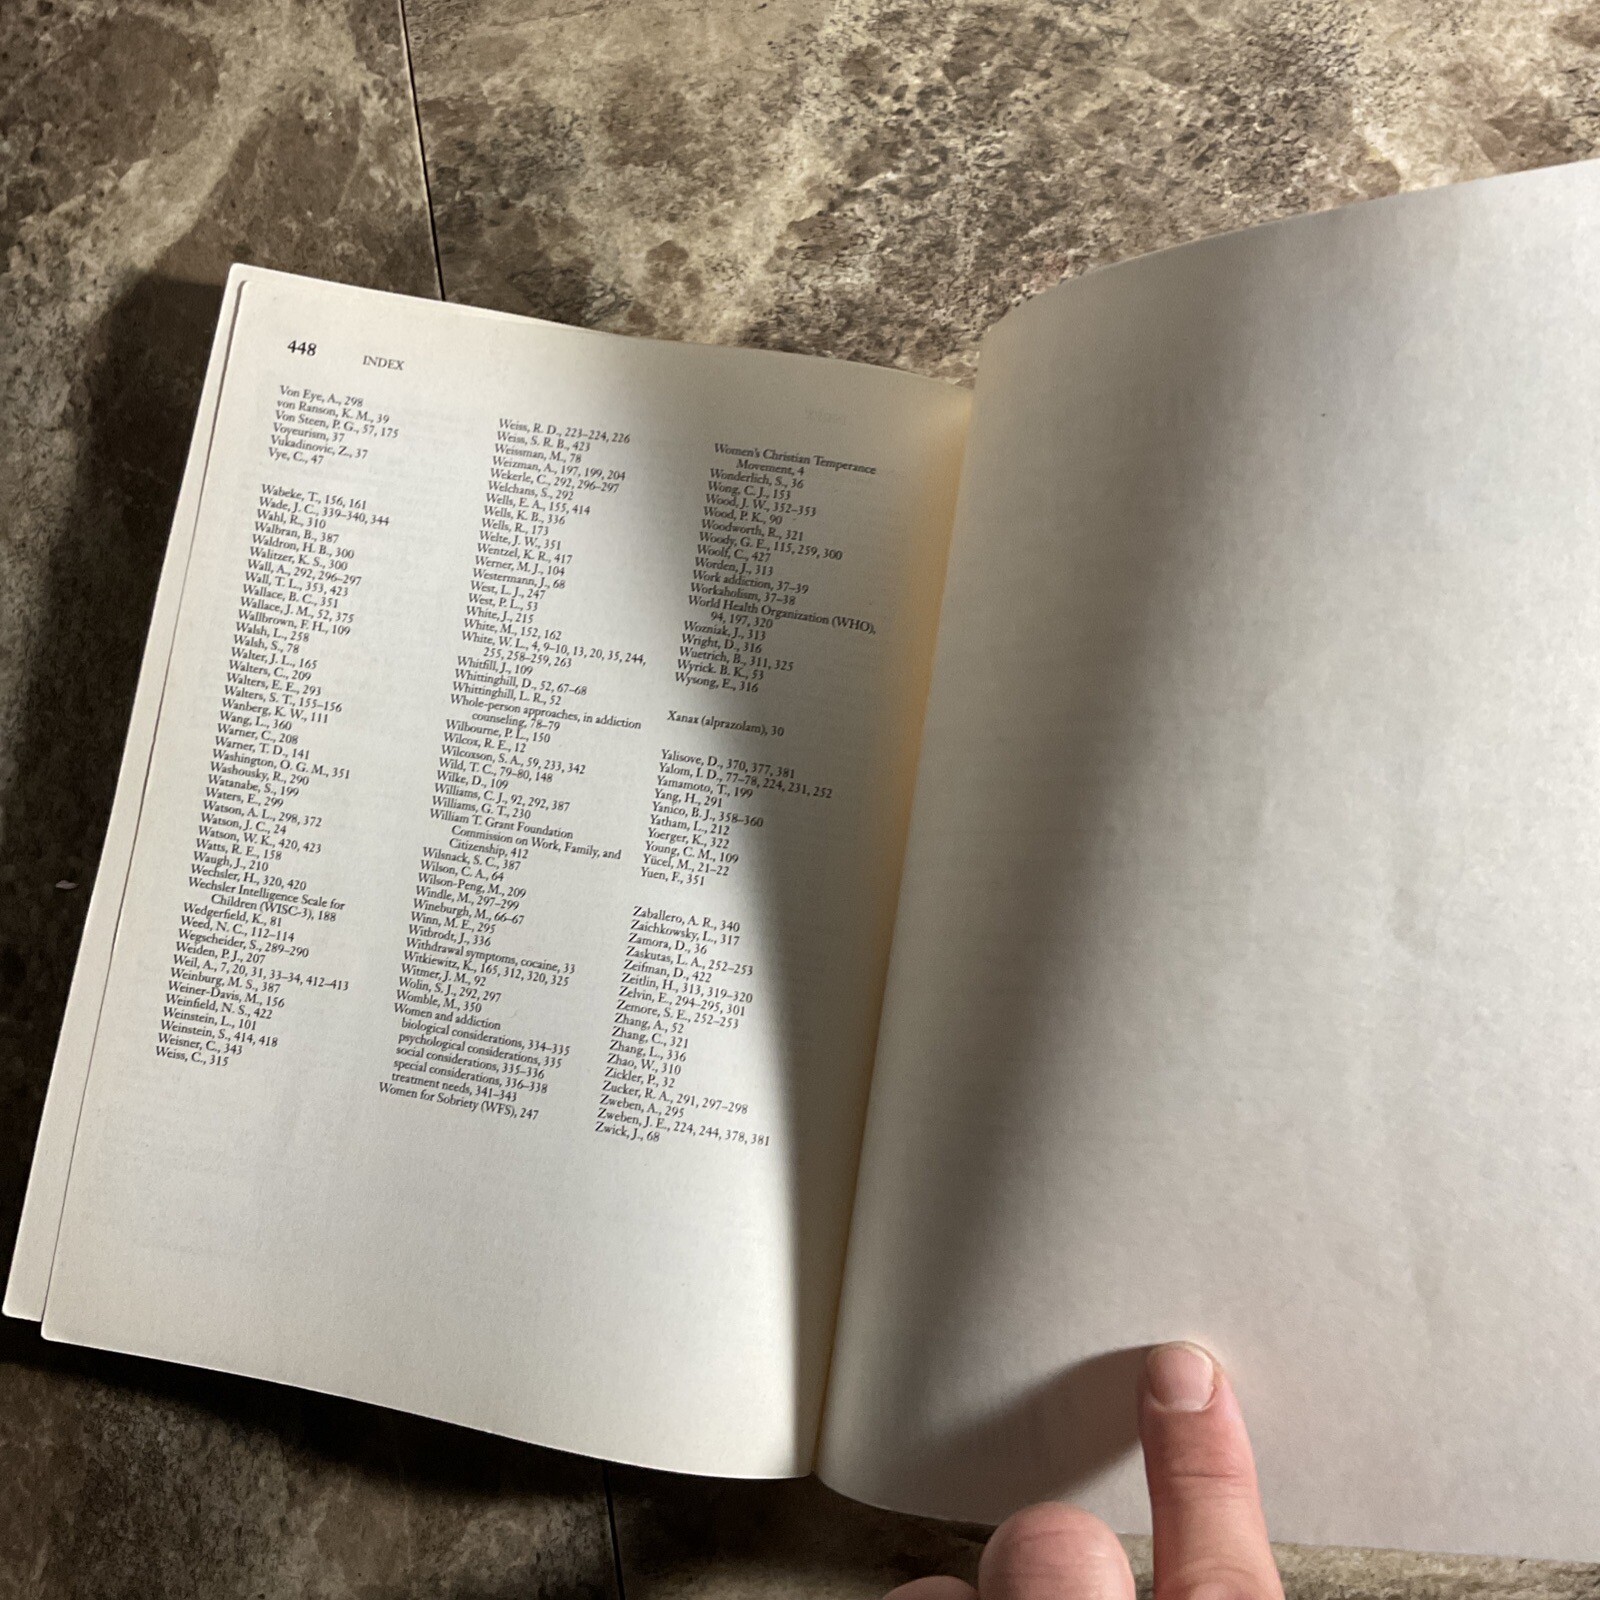 448 INDEX
Von Eye, A., 298
von Ranson, K. M., 39
Von Steen, P. G., 57, 175
Voyeurism, 37
Vukadinovic, Z., 37
Vye, C., 47
Wabeke, T., 156, 161
Wade, J. C., 339–340, 344
Wahl, R., 310
Walbran, B., 387
Waldron, H. B., 300
Walitzer, K. S., 300
Wall, A., 292, 296–297
Wall, T. L., 353, 423
Wallace, B. C., 351
Wallace, J. M., 52, 375
Wallbrown, F. H., 109
Walsh, L., 258
Walsh, S., 78
Walter, J. L., 165
Walters, C., 209
Walters, E. E., 293
Walters, S. T., 155–156
Wanberg, K. W., 111
Wang, L., 360
Warner, C., 208
Warner, T. D., 141
Washington, O. G. M., 351
Washousky, R., 290
Watanabe, S., 199
Waters, E., 299
Watson, A. L., 298, 372
Watson, J. C., 24
Watson, W. K., 420, 423
Watts, R. E., 158
Waugh, J., 210
Wechsler, H., 320, 420
Wechsler Intelligence Scale for
Children (WISC-3), 188
Wedgerfield, K., 81
Weed, N. C., 112–114
Wegscheider, S., 289–290
Weiden, P. J., 207
Weil, A., 7, 20, 31, 33–34, 412–413
Weinburg, M. S., 387
Weiner-Davis, M., 156
Weinfield, N. S., 422
Weinstein, L., 101
Weinstein, S., 414, 418
Weisner, C., 343
Weiss, C., 315
Weiss, R. D., 223–224, 226
Weiss, S. R. B., 423
Weissman, M., 78
Weizman, A., 197, 199, 204
Wekerle, C., 292, 296–297
Welchans, S., 292
Wells, E. A., 155, 414
Wells, K. B., 336
Wells, R., 173
Welte, J. W., 351
Wentzel, K. R., 417
Werner, M. J., 104
Westermann, J., 68
West, L. J., 247
West, P. L., 53
White, J., 215
White, M., 152, 162
White, W. L., 4, 9–10, 13, 20, 35, 244,
255, 258–259, 263
Whitfill, J., 109
Whittinghill, D., 52, 67–68
Whittinghill, L. R., 52
Whole-person approaches, in addiction
counseling, 78–79
Wilbourne, P. L., 150
Wilcox, R. E., 12
Wilcoxson, S. A., 59, 233, 342
Wild, T. C., 79–80, 148
Wilke, D., 109
Williams, C. J., 92, 292, 387
Williams, G. T., 230
William T. Grant Foundation
Commission on Work, Family, and
Citizenship, 412
Wilsnack, S. C., 387
Wilson, C. A., 64
Wilson-Peng, M., 209
Windle, M., 297–299
Wineburgh, M., 66–67
Winn, M. E., 295
Witbrodt, J., 336
Withdrawal symptoms, cocaine, 33
Witkiewitz, K., 165, 312, 320, 325
Witmer, J. M., 92
Wolin, S. J., 292, 297
Womble, M., 350
Women and addiction
biological considerations, 334–335
psychological considerations, 335
social considerations, 335–336
special considerations, 336–338
treatment needs, 341–343
Women for Sobriety (WFS), 247
Women's Christian Temperance
Movement, 4
Wonderlich, S., 36
Wong, C. J., 153
Wood, J. W., 352–353
Wood, P. K., 90
Woodworth, R., 321
Woody, G. E., 115, 259, 300
Woolf, C., 427
Worden, J., 313
Work addiction, 37–39
Workaholism, 37–38
World Health Organization (WHO),
94, 197, 320
Wozniak, J., 313
Wright, D., 316
Wuetrich, B., 311, 325
Wyrick. B. K., 53
Wysong, E., 316
Xanax (alprazolam), 30
Yalisove, D., 370, 377, 381
Yalom, I. D., 77–78, 224, 231, 252
Yamamoto, T., 199
Yang, H., 291
Yanico, B. J., 358–360
Yatham, L., 212
Yoerger, K., 322
Young, C. M., 109
Yücel, M., 21–22
Yuen, F., 351
Zaballero, A. R., 340
Zaichkowsky, L., 317
Zamora, D., 36
Zaskutas, L. A., 252–253
Zeifman, D., 422
Zeitlin, H., 313, 319–320
Zelvin, E., 294–295, 301
Zemore, S. E., 252–253
Zhang, A., 52
Zhang, C., 321
Zhang, L., 336
Zhao, W., 310
Zickler, P., 32
Zucker, R. A., 291, 297–298
Zweben, A., 295
Zweben, J. E., 224, 244, 378, 381
Zwick, J., 68